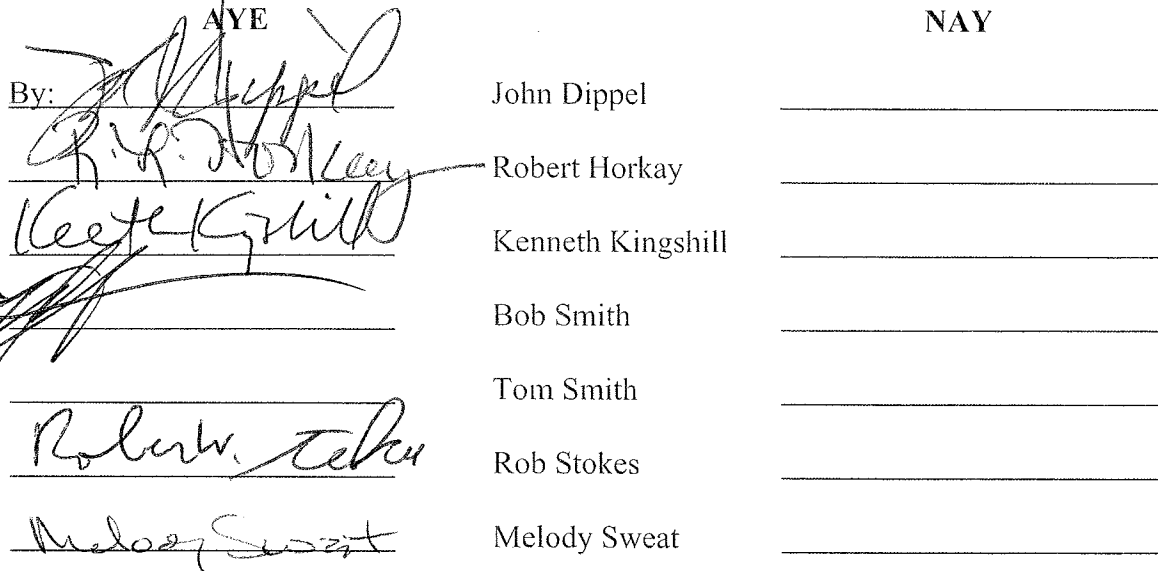 AYE NAY
By: J Dippel John Dippel
R. R. Horkay Robert Horkay
Kenneth Kingshill
Bob Smith
Tom Smith
Robert W. Rob Stokes
Melody Sweat Melody Sweat